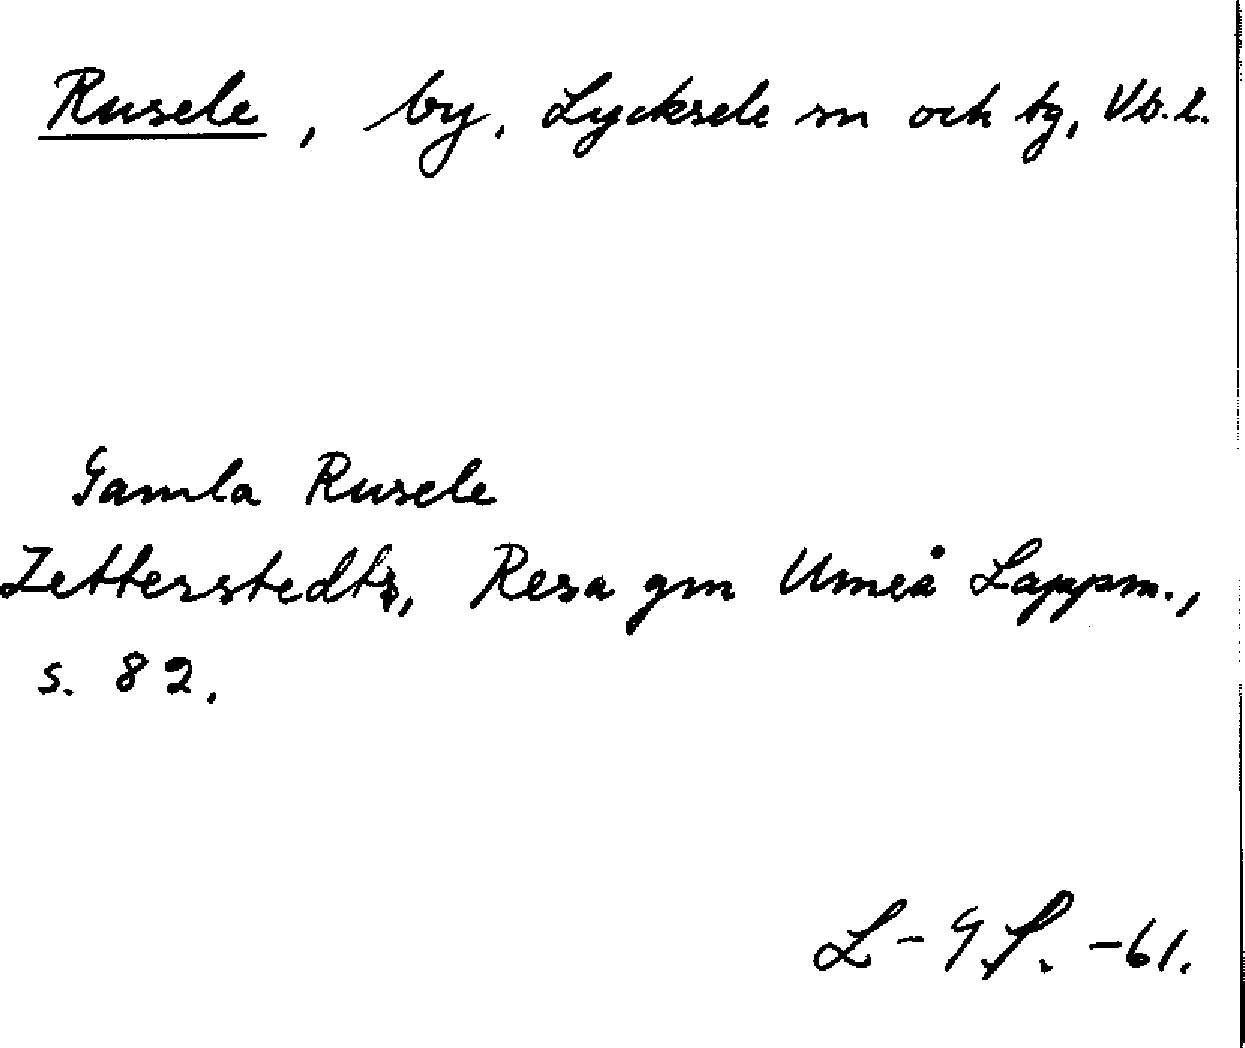 Rusele, by, Lycksele sn och tg, Vb. l.
Gamla Rusele
Zetterstedts, Resa gm Umeå Lappm.,
s. 82.
L-G.S. -61.